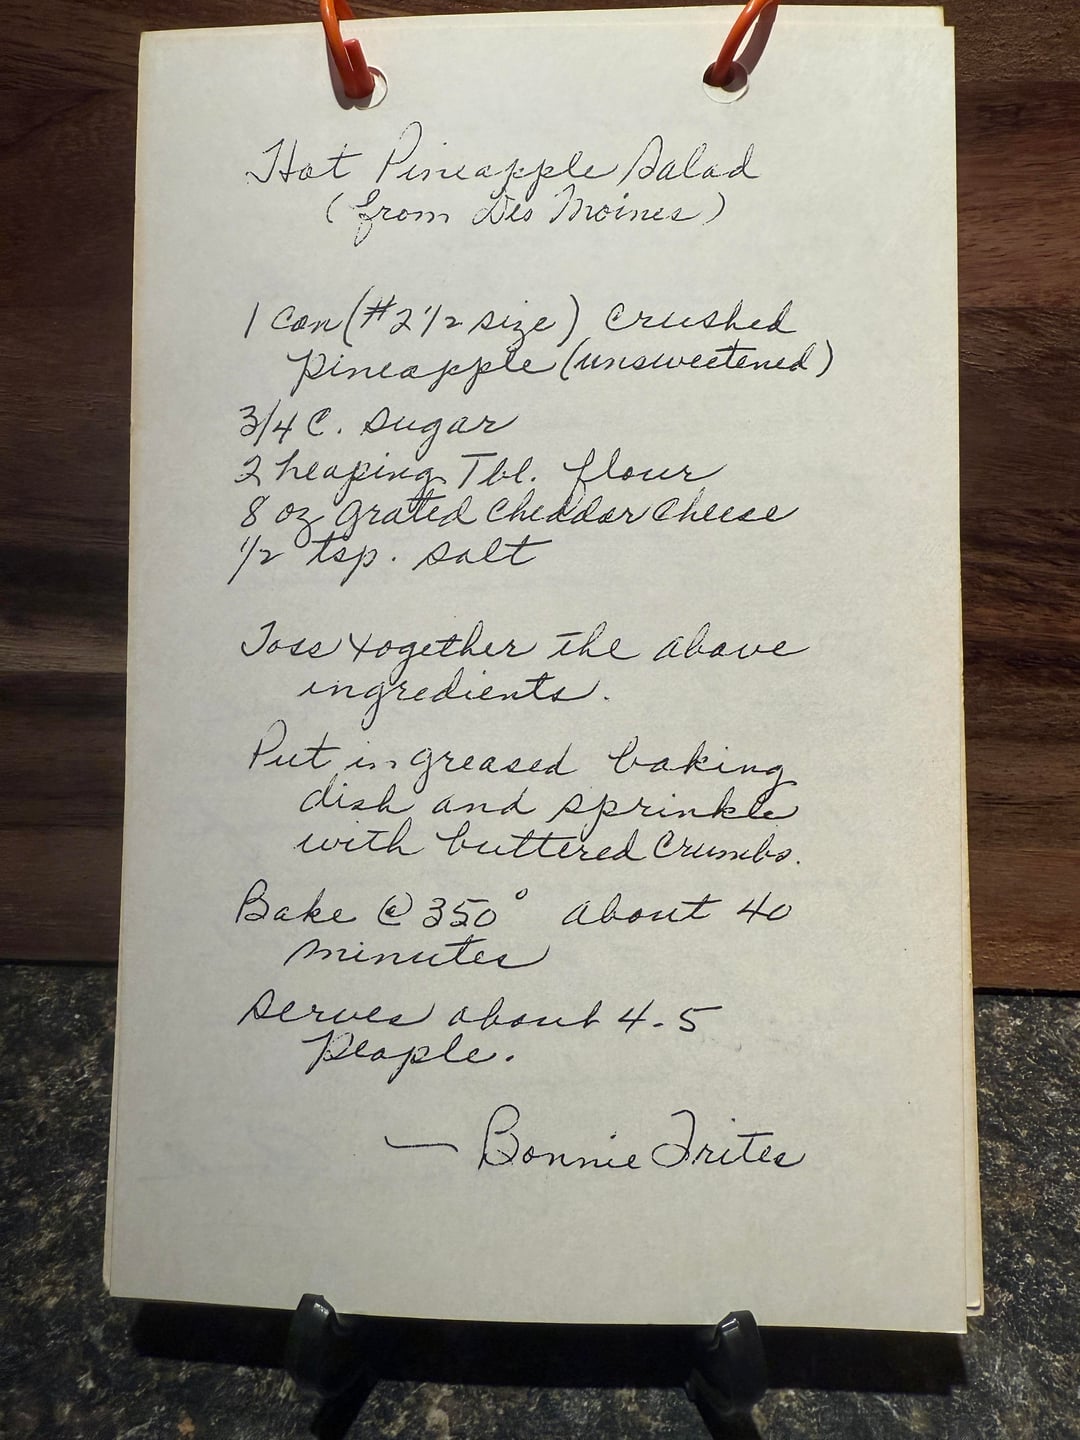 Hot Pineapple Salad
(from Des Moines)
1 can (#2 1/2 size) crushed
pineapple (unsweetened)
3/4 C. sugar
2 heaping Tbl. flour
8 oz grated cheddar cheese
1/2 tsp. salt
Toss together the above
ingredients.
Put in greased baking
dish and sprinkle
with buttered crumbs.
Bake @ 350° about 40
minutes
Serves about 4-5
people.
— Bonnie Frites